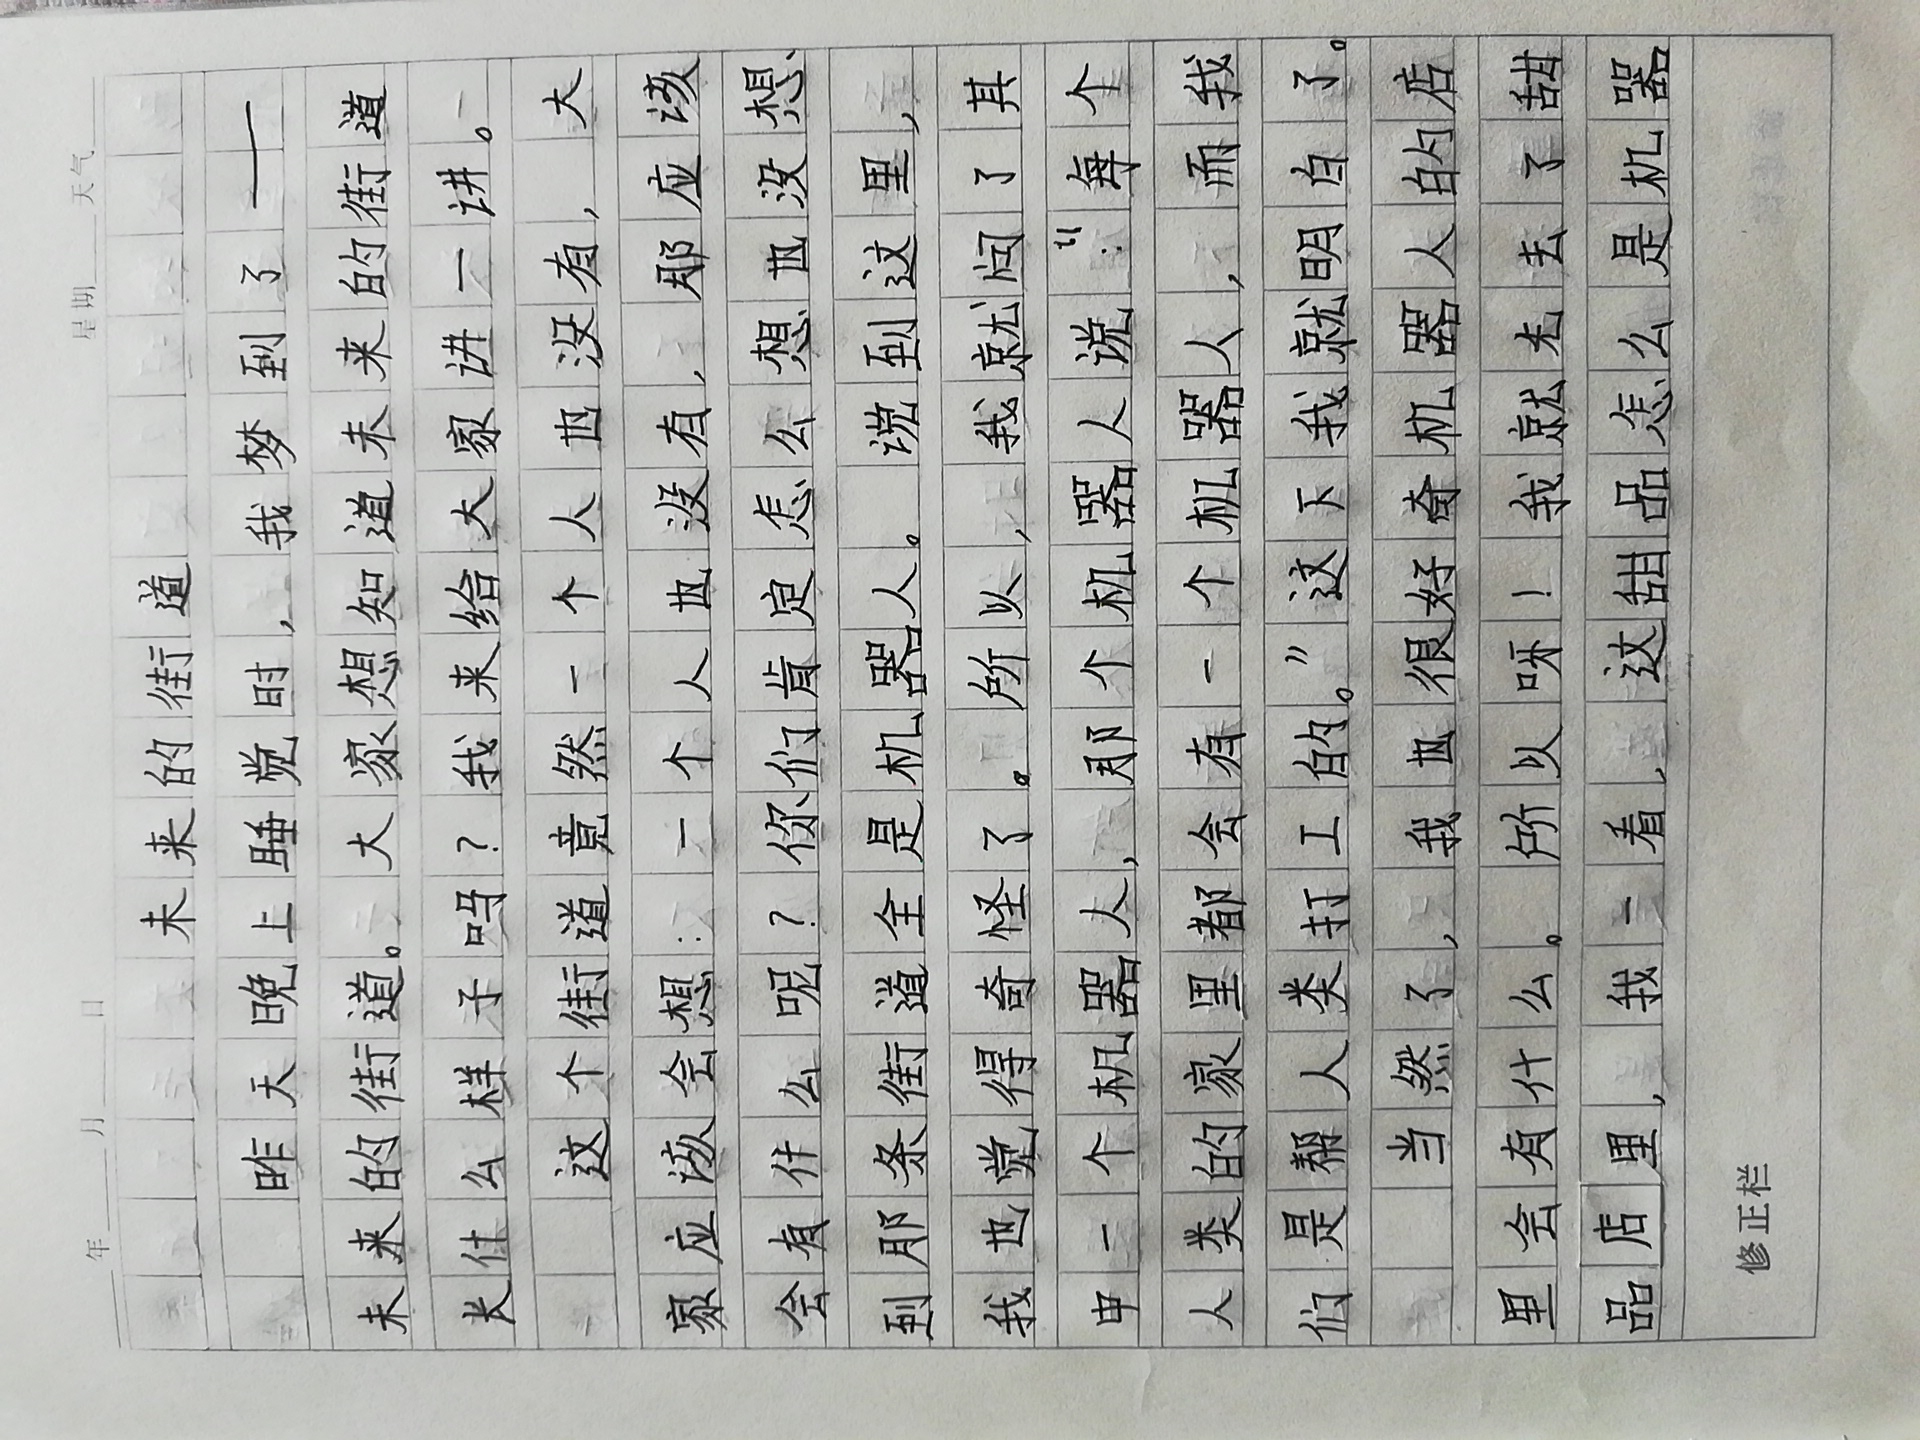 年 月 日 星期 天气
未来的街道
昨天晚上睡觉时，我梦到了——
未来的街道。大家想知道未来的街道
长什么样子吗？我来给大家讲一讲。
这个街道竟然一个人也没有，大
家应该会想：一个人也没有，那应该
会有什么呢？你们肯定怎么想也没想
到那条街道全是机器人。说到这里，
我也觉得奇怪了。所以，我就问了其
中一个机器人，那个机器人说：“每个
人类的家里都会有一个机器人，而我
们是帮人类打工的。”这下我就明白了。
当然了，我也很好奇机器人的店
里会有什么。所以呀！我就先去了甜
品店里，我一看，这甜品怎么是机器
修正栏